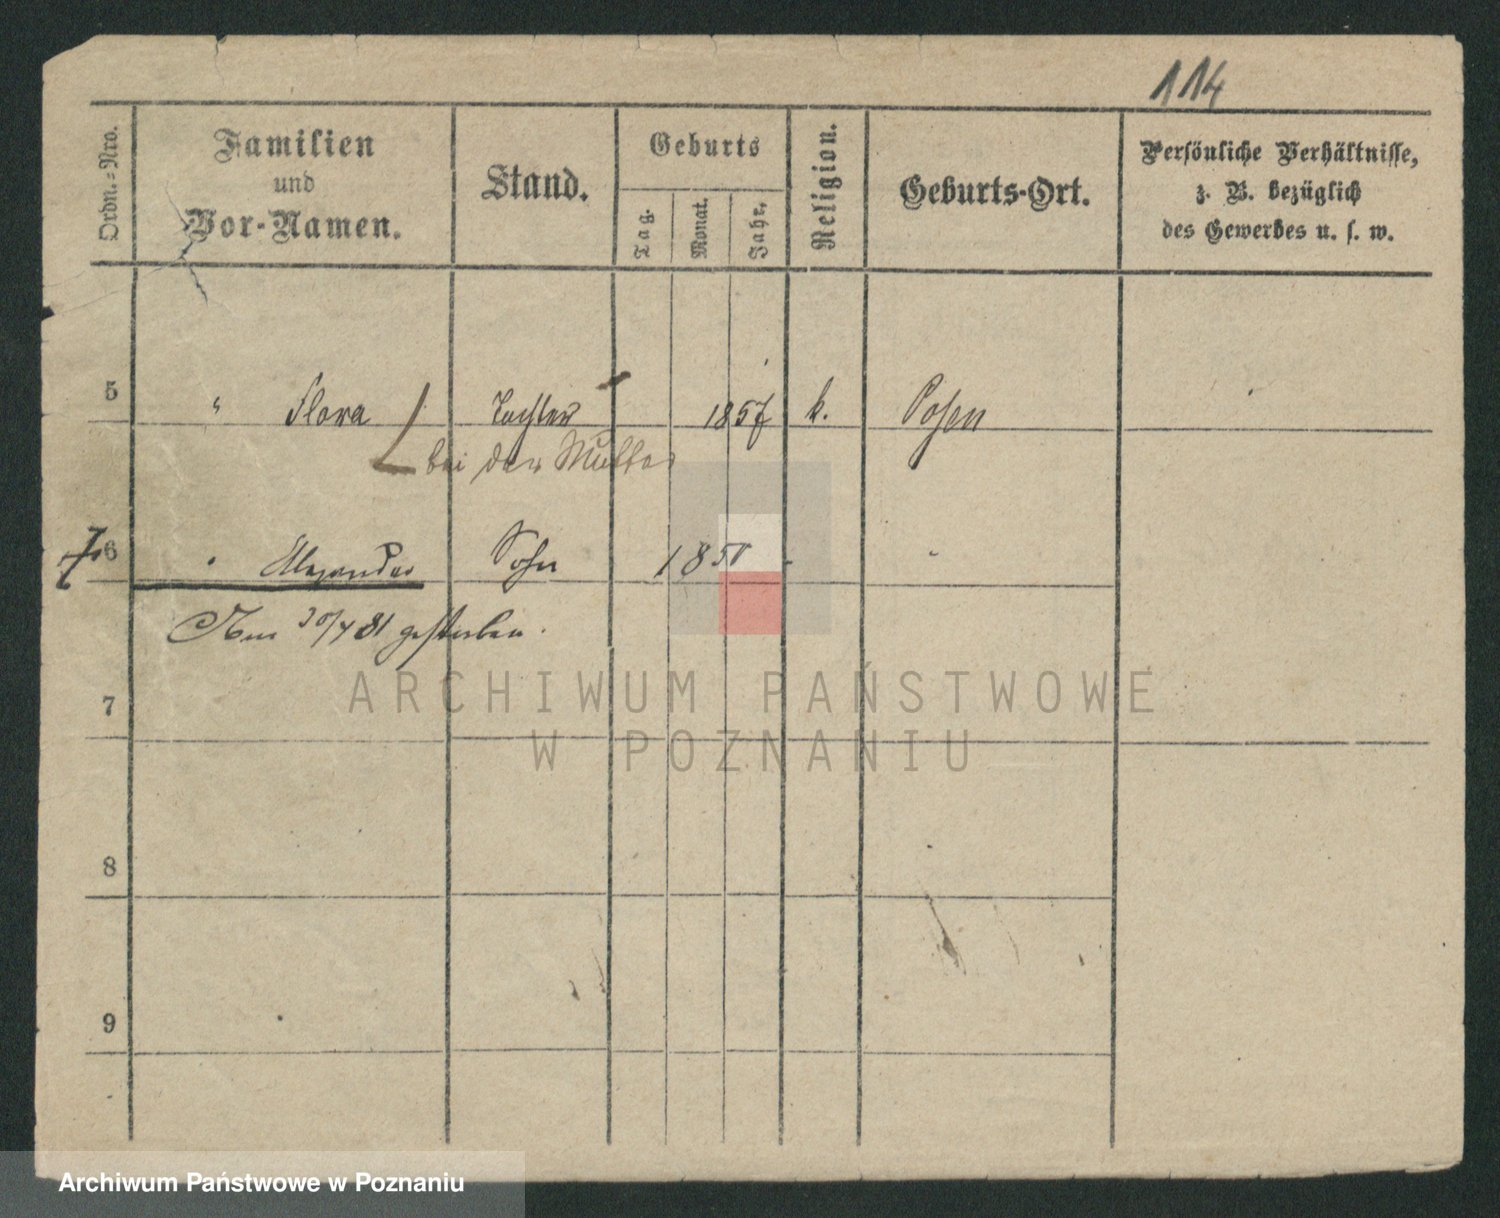 114
Ordn.=Nro.
Familien
und
Vor-Namen.
Stand.
Geburts
Tag.
Monat.
Jahr.
Religion.
Geburts-Ort.
Persönliche Verhältnisse,
z. B. bezüglich
des Gewerbes u. s. w.
5 " Flora Tochter 1857 k. Posen
bei der Mutter
6 Alexander Sohn
30/4 81 gestorben.
7
8
9
ARCHIWUM PAŃSTWOWE
W POZNANIU
Archiwum Państwowe w Poznaniu